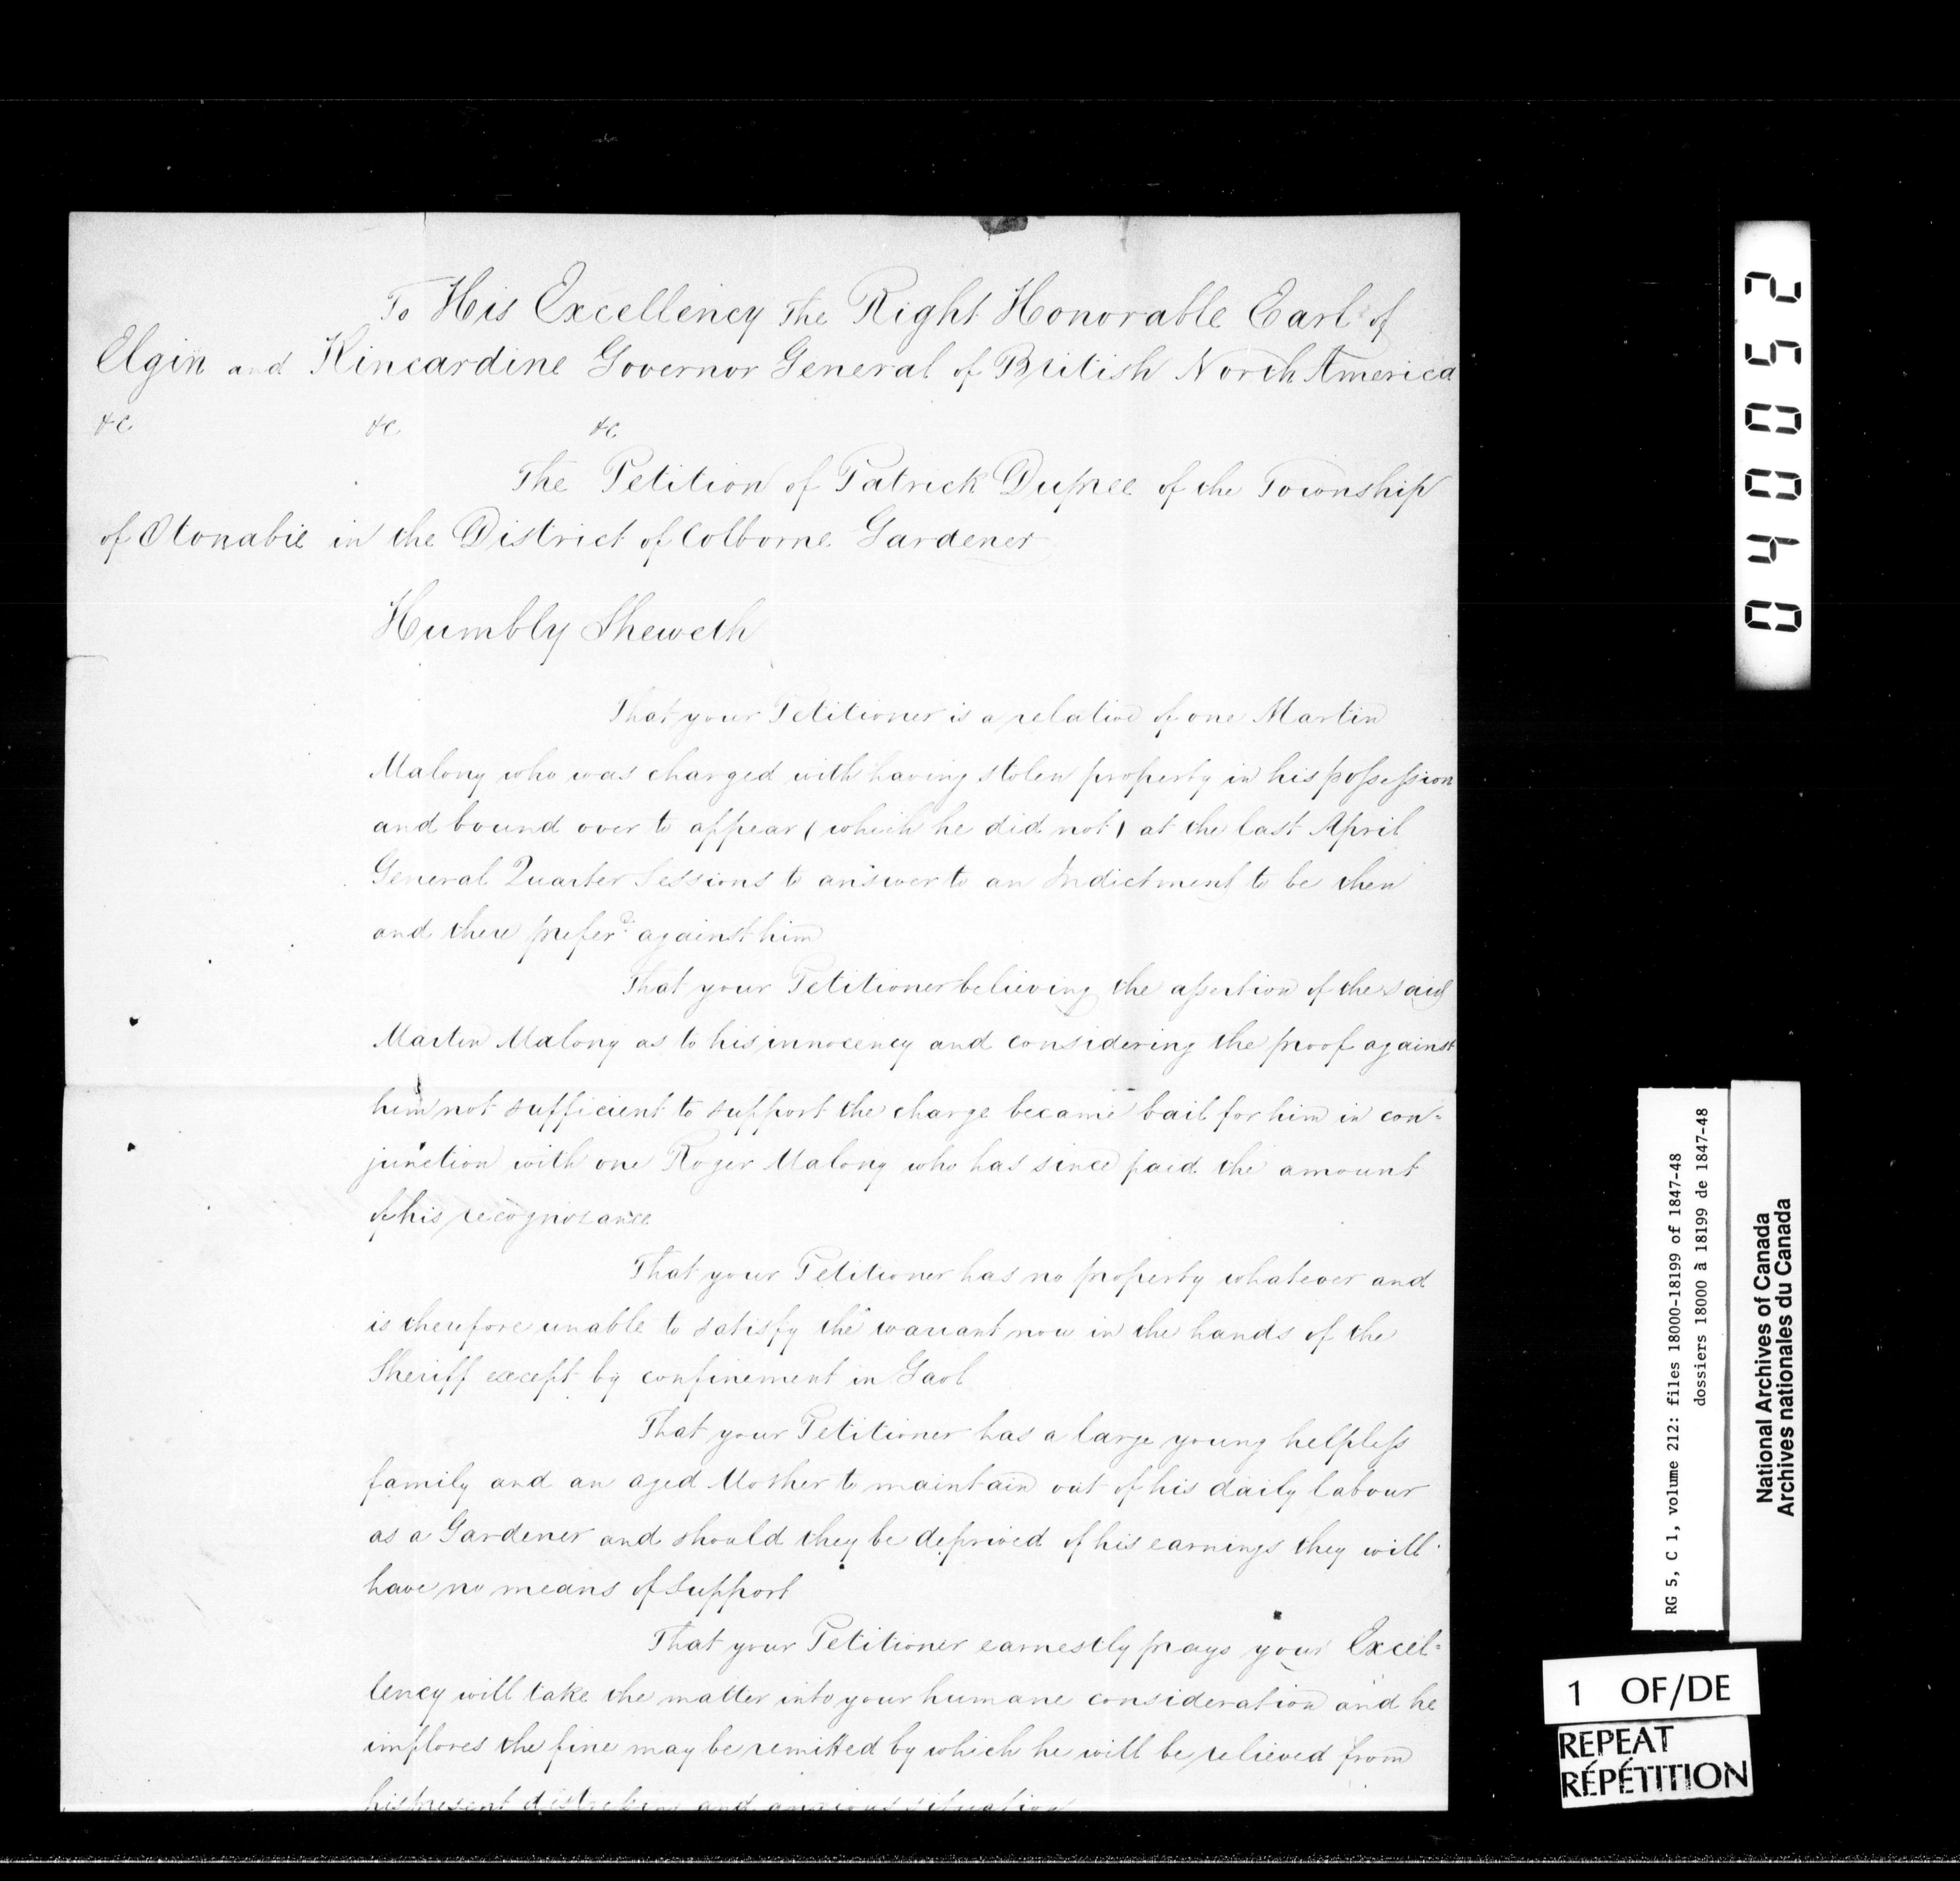 To His Excellency The Right Honorable Earl of
Elgin and Kincardine Governor General of British North America
&c &c &c
The Petition of Patrick Dupree of the Township
of Otonabie in the District of Colborne Gardener
Humbly Sheweth
That your Petitioner is a relative of one Martin
Malony who was charged with having stolen property in his possession
and bound over to appear (which he did not) at the last April
General Quarter Sessions to answer to an Indictment to be then
and there prefer^d against him
That your Petitioner believing the assertion of the said
Martin Malony as to his innocency and considering the proof against
him not sufficient to support the charge became bail for him in con=
junction with one Roger Malony who has since paid the amount
of his recognizance
That your Petitioner has no property whatever and
is therefore unable to satisfy the warrant now in the hands of the
Sheriff except by confinement in Gaol
That your Petitioner has a large young helpless
family and an aged Mother to maintain out of his daily labour
as a Gardener and should they be deprived of his earnings they will
have no means of support
That your Petitioner earnestly prays your Excel=
lency will take the matter into your humane consideration and he
implores the fine may be remitted by which he will be relieved from
his present and anxious situation
040052
RG 5, C 1, volume 212: files 18000-18199 of 1847-48
dossiers 18000 à 18199 de 1847-48
National Archives of Canada
Archives nationales du Canada
1 OF/DE
REPEAT
RÉPÉTITION